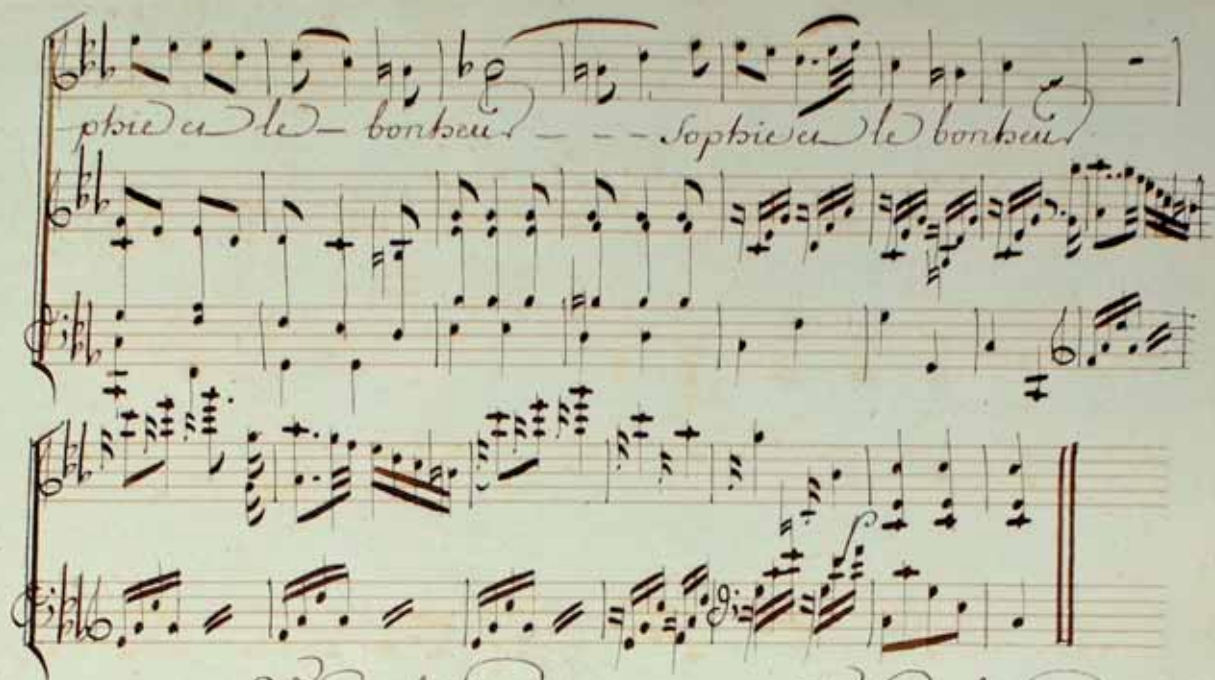 phie et le - bonheur - - - Sophie et le bonheur